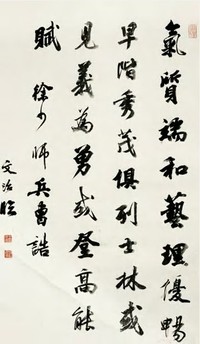 氣質端和藝理優暢
早階秀茂俱列士林或
見義為勇或登高能
賦 徐少師兵曹誥
文治臨